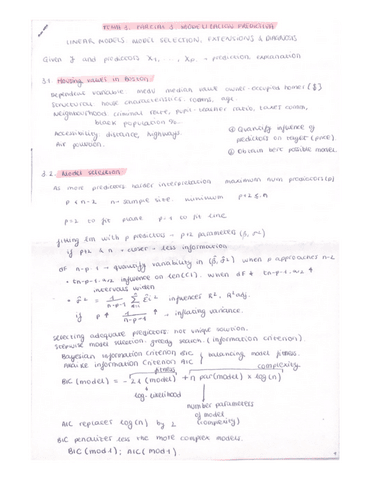 TEMA 3. PARCIAL 3 MODELIZACION PREDICTIVA
LINEAR MODELS: MODEL SELECTION, EXTENSIONS & DIAGNOSIS
Given Y and predictors X1, ..., Xp - prediction explanation
3.1. Housing values in Boston.
Dependent variable mean median value owner-occupied homes ($)
Structural house characteristics: rooms, age
Neighbourhood: criminal rate, pupil-teacher ratio, lower comm,
black population %.
Accesibility: distance, highways.
Air polution.
① Quantify influence of
predictors on target (price)
② Obtain here possible model.
3.2. Model selection
As more predictors harder interpretation maximum num predictors (p)
p < n-2 n → sample size. minimum
p=2 to fit plane p=1 to fit line
fitting lm with p predictors → p+2 parameters
if p+2 & n → closer - less information
df n-p-1 → quantify variability in when p approaches n-2
influence on len(CI). when df ↓ ↑
intervals widen
influences R², R²adj.
if p ↑ ↑ → inflating variance.
Selecting adequate predictors. not unique solution.
stepwise model selection, greedy search. (information criterion).
Bayesian information criterion BIC balancing model fitness.
Akaike information criterion AIC
fitness complexity
BIC(model) = -2ℓ(model) + npar(model) × log(n)
log-likelihood
number parameters
of model
(complexity)
AIC replaces log(n) by 2
BIC penalizes less the more complex models.
BIC(mod1); AIC(mod1)